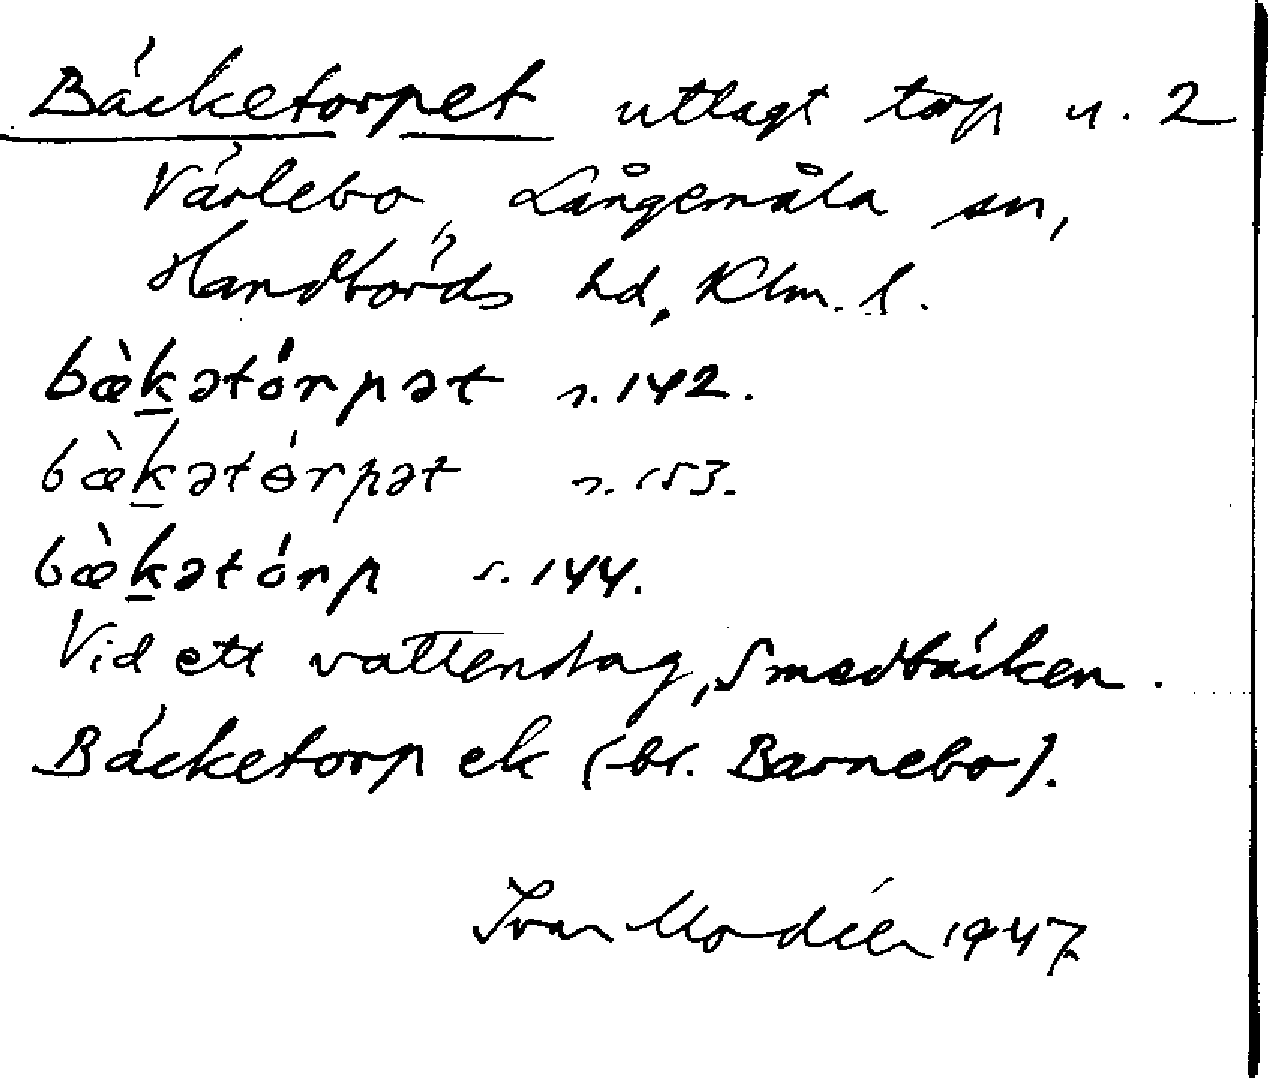 Bäcketorpet utlagt torp u. 2
Värlebo, Långemåla sn,
Handbörds hd, Klm. l.
bæ̀k̠ətórpət s. 142.
bæ̀k̠ətórpət s. 153.
bæ̀k̠ətórp s. 144.
Vid ett vattendrag, Smedbäcken.
Bäcketorp ek (bl. Barnebo).
Ivar Modéer 1947